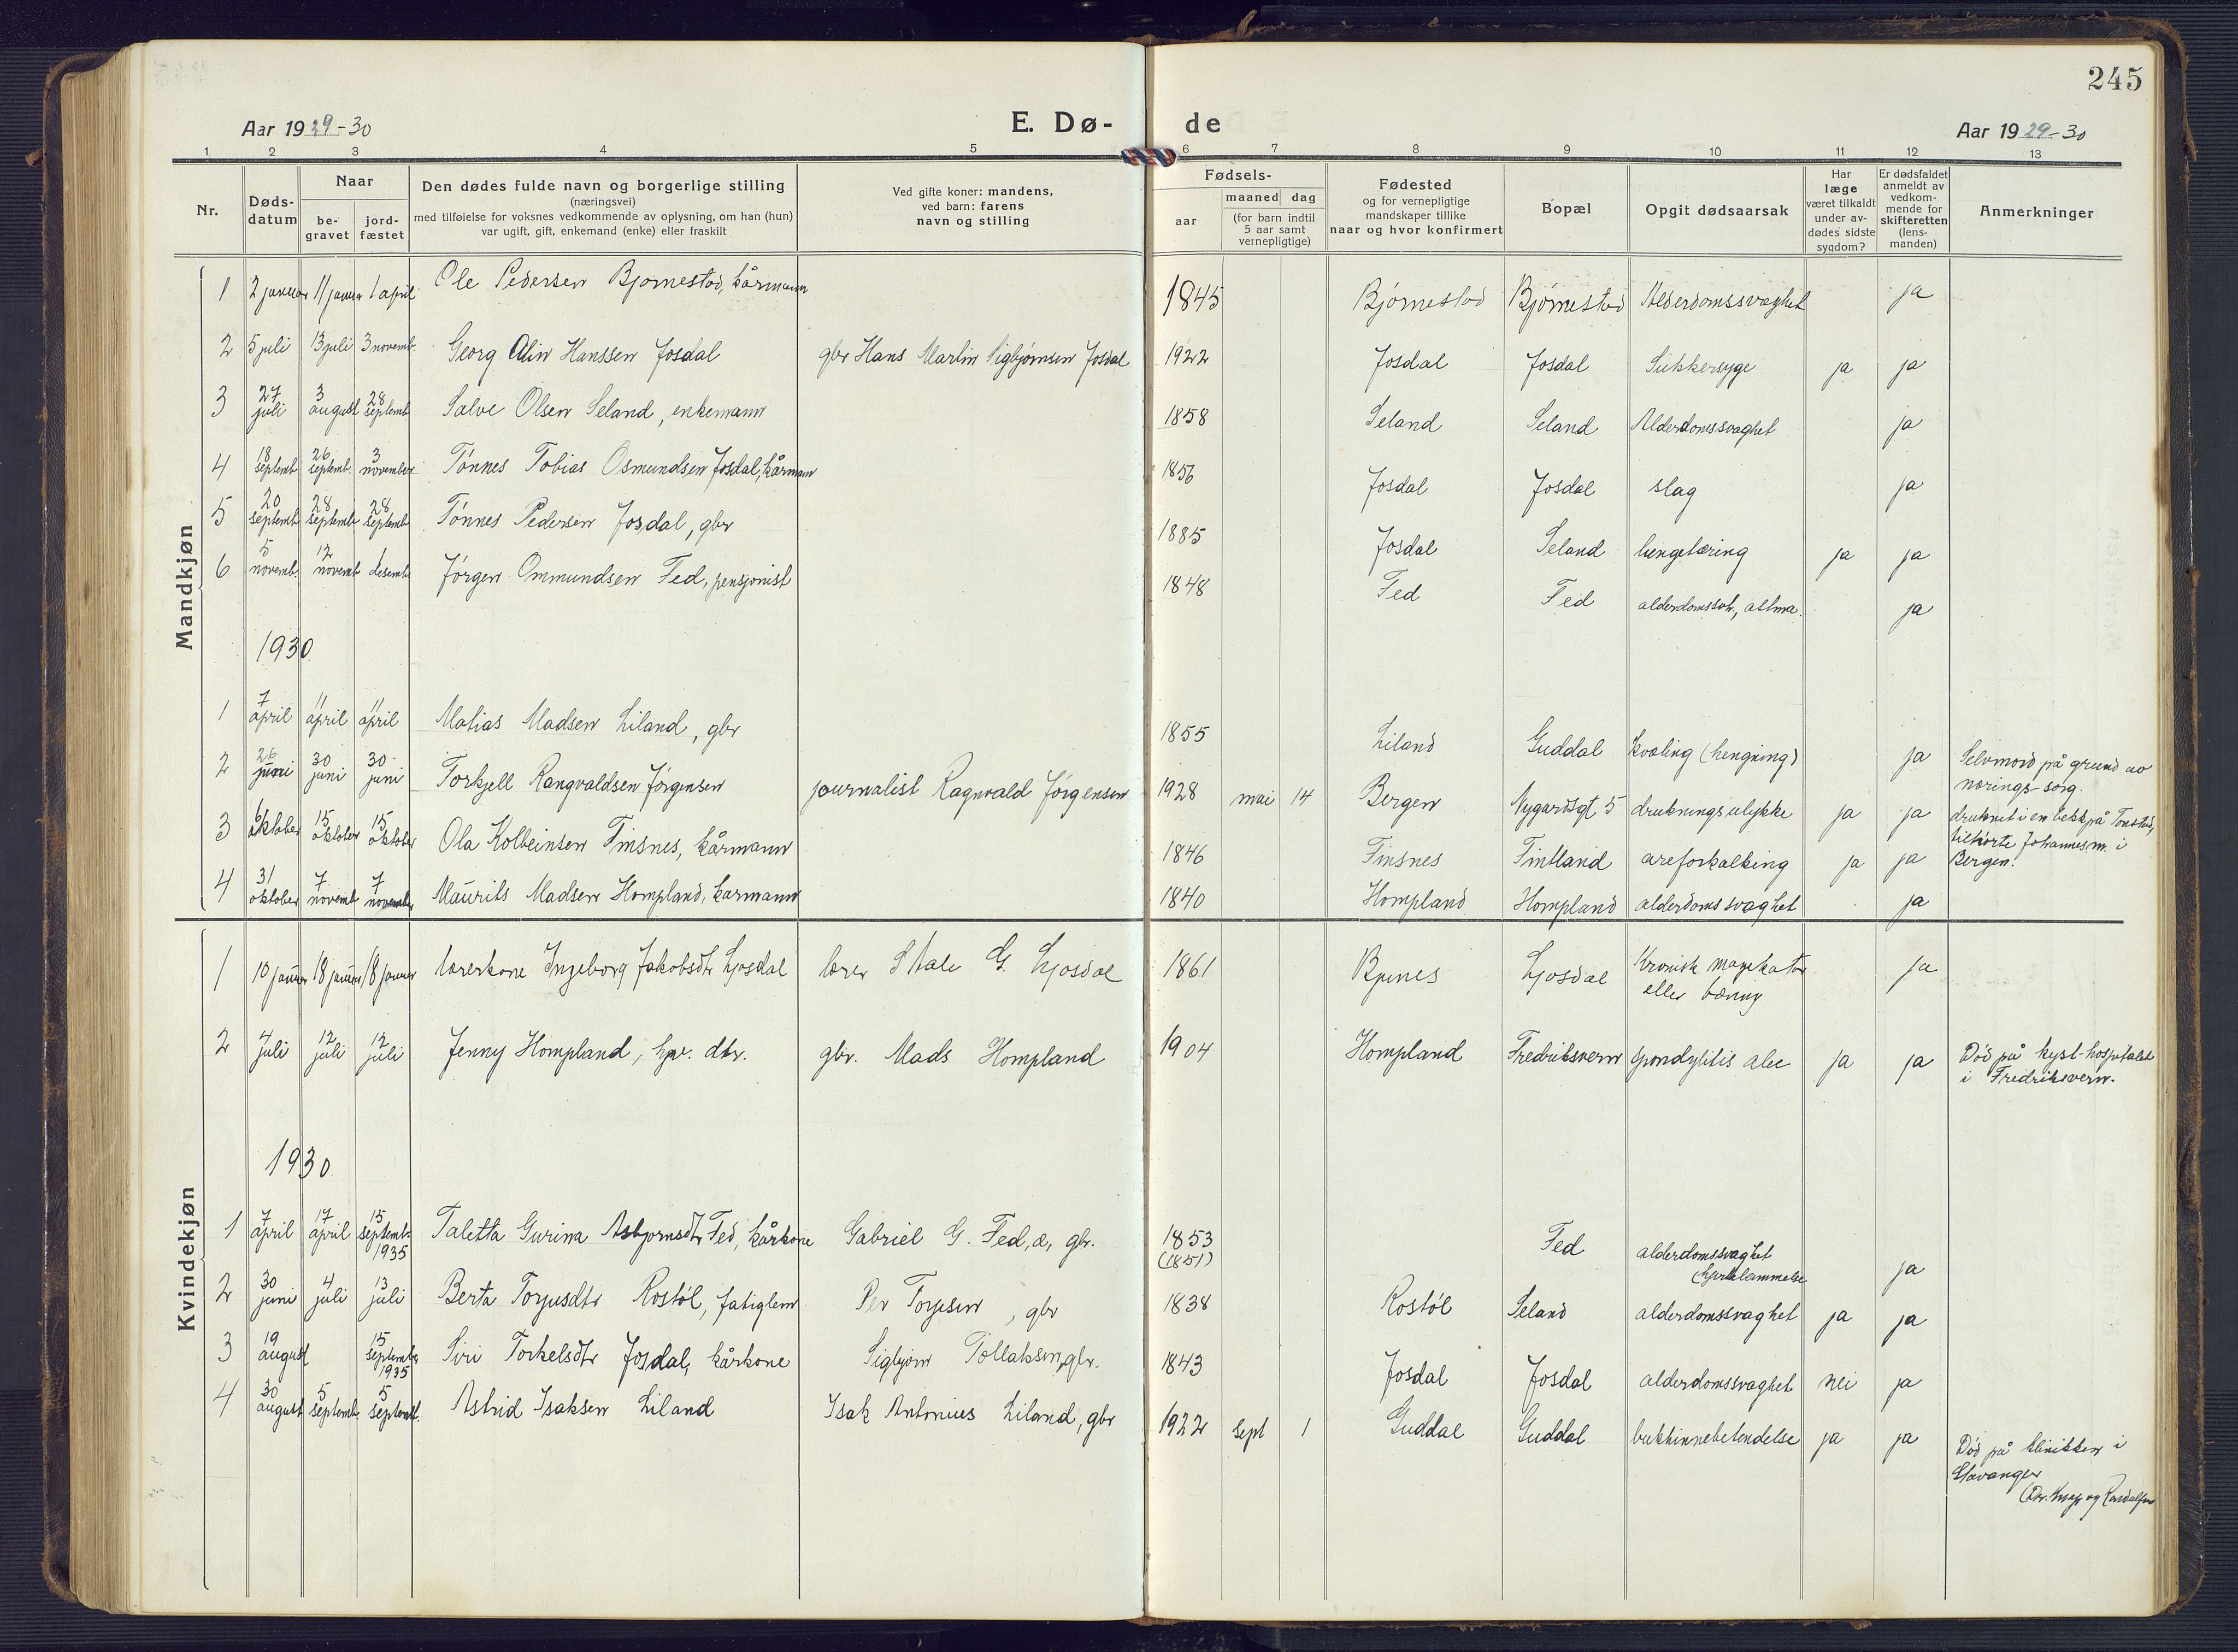 245
Aar 1929-30
E. Dø-
de
Aar 1929-30
1 2 3 4 5 6 7 8 9 10 11 12 13
Nr.
Døds-
datum
Naar
be-
gravet
jord-
fæstet
Den dødes fulde navn og borgerlige stilling
(næringsvei)
med tilføielse for voksnes vedkommende av oplysning, om han (hun)
var ugift, gift, enkemand (enke) eller fraskilt
Ved gifte koner: mandens,
ved barn: farens
navn og stilling
Fødsels-
aar
maaned dag
(for barn indtil
5 aar samt
vernepligtige)
Fødested
og for vernepligtige
mandskaper tillike
naar og hvor konfirmert
Bopæl
Opgit dødsaarsak
Har
læge
været tilkaldt
under av-
dødes sidste
sygdom?
Er dødsfaldet
anmeldt av
vedkom-
mende for
skifteretten
(lens-
manden)
Anmerkninger
Mandkjøn
1 2 januar 11 januar 1 april Ole Pedersen Bjørnestad, kårmann 1845 Bjørnestad Bjørnestad Alderdomssvaghet ja
2 5 juli 13 juli 3 novemb. Georg Alin Hanssen Josdal gbr Hans Martin Sigbjørnsen Josdal 1922 Josdal Josdal Sukkersyge ja ja
3 27 juli 3 august 28 septemb Salve Olsen Seland, enkemann 1858 Seland Seland Alderdomssvaghet ja
4 18 septemb 26 septemb. 3 november Tønnes Tobias Osmundsen Josdal, kårmann 1856 Josdal Josdal slag ja
5 20 septemb 28 septemb 28 septemb Tønnes Pedersen Josdal, gbr 1885 Josdal Seland lungetæring ja ja
6 5 novemb. 12 novemb 1 desemb Jørgen Ommundsen Fed, pensjonist 1848 Fed Fed alderdomssvh., astma. ja
1930
1 7 april 11 april 11 april Matias Madsen Liland, gbr 1855 Liland Guddal kvæling (hengning) ja Selvmord på grund av
nærings-sorg.
2 26 juni 30 juni 30 juni Torkjell Rangvaldsen Jørgensen journalist Ragnvald Jørgensen 1928 mai 14 Bergen Nygardsgt 5 drukningsulykke ja ja druknet i en bekk på Tonstad,
tilhørte Johannesm. i
Bergen.
3 6 oktober 15 oktober 15 oktober Ola Kolbeinsen Finsnes, kårmann 1846 Finsnes Fintland areforkalking ja ja
4 31 oktober 7 novemb 7 november Maurits Madsen Hompland, karmann 1840 Hompland Hompland alderdomssvaghet ja
Kvindekjøn
1 10 januar 18 januar 18 januar lærerkone Ingeborg Jakobsdtr Ljosdal lærer Ståle G. Ljosdal 1861 Bjunes Ljosdal Kronisk magekatar
eller tæring ja
2 4 juli 12 juli 12 juli Jenny Hompland, dtr. gbr. Mads Hompland 1904 Hompland Fredriksvern spondylitis ja ja Død på kyst-hospitalet
i Fredriksvern.
1930
1 7 april 17 april 15 septemb. 1935 Taletta Gurina Asbjørnsdtr Fed, kårkone Gabriel G. Fed, gbr. 1853
(1851) Fed alderdomssvaghet
(hjertelammelse ja
2 30 juni 4 juli 13 juli Berta Torjusdtr Rostøl, fatiglem Per Torjusen, gbr 1838 Rostøl Seland alderdomssvaghet ja ja
3 19 august 15 septemb 1935 Siri Torkelsdtr Josdal, kårkone Sigbjørn Tollaksen, gbr. 1843 Josdal Josdal alderdomssvaghet nei ja
4 30 august 5 septemb. 5 septemb. Astrid Isaksen Liland Isak Antonius Liland, gbr 1922 sept 1 Guddal Guddal bukhinnebetendelse ja ja Død på klinikken i
Stavanger
(Dr. og